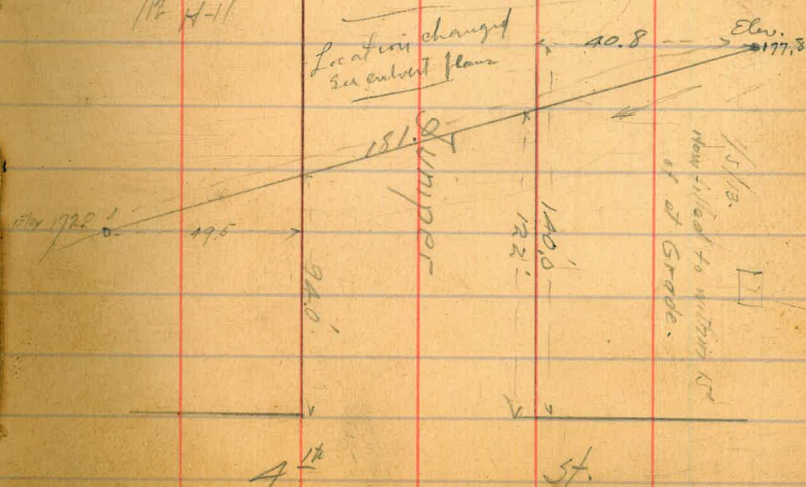 Location changed
See culvert plans
40.8
Elev.
177.8
181.
Juniper
Elev 172.2
49.5
94.0'
140.0'
122'
1/5/13.
Now filled to within 15'
of Grade.
4th St.